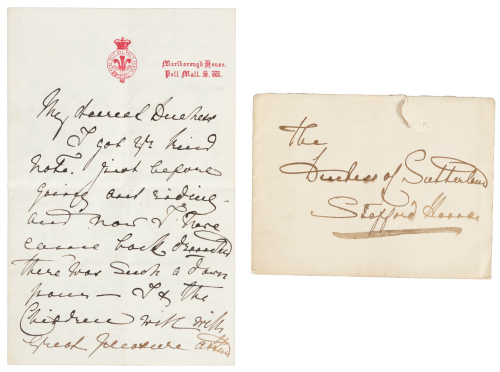 Marlborough House.
Pall Mall. S. W.
My dearest Duchess
I got yr kind
note. just before
going out riding -
and now I have
come back drenched
there was such a down
pour - I & the
Children will with
great pleasure
The
Duchess of Sutherland
Stafford House